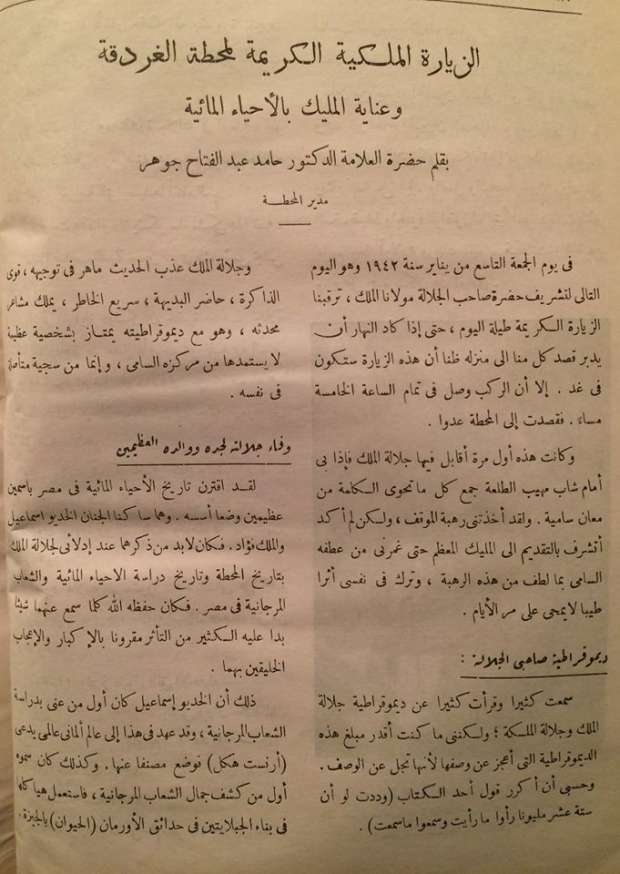 الزيارة الملكية الكريمة لمحطة الغردقة
وعناية المليك بالأحياء المائية
بقلم حضرة العلامة الدكتور حامد عبد الفتاح جوهر
مدير المحطة
فى يوم الجمعة التاسع من يناير سنة ١٩٤٢ وهو اليوم
التالى لتشريف حضرة صاحب الجلالة مولانا الملك ، ترقبنا
الزيارة الكريمة طيلة اليوم ، حتى إذا كاد النهار أن
يدبر قصد كل منا الى منزله ظنا أن هذه الزيارة ستكون
فى غد . إلا أن الركب وصل فى تمام الساعة الخامسة
مساء . فقصدت إلى المحطة عدوا .
وكانت هذه أول مرة أقابل فيها جلالة الملك فإذا بى
أمام شاب مهيب الطلعة جمع كل ما تحوى الكلمة من
معان سامية . ولقد أخذتنى رهبة الموقف ، ولكن لم أكد
أتشرف بالتقديم الى المليك المعظم حتى غمرنى من عطفه
السامى بما لطف من هذه الرهبة ، وترك فى نفسى أثرا
طيبا لا يمحى على مر الأيام .
ديموقراطية صاحبى الجلالة :
سمعت كثيرا وقرأت كثيرا عن ديموقراطية جلالة
الملك وجلالة الملكة ؛ ولكننى ما كنت أقدر مبلغ هذه
الديموقراطية التى أعجز عن وصفها لأنها تجل عن الوصف .
وحسبى أن أكرر قول أحد الكتاب (وددت لو أن
ستة عشر مليونا رأوا ما رأيت وسمعوا ما سمعت) .
وجلالة الملك عذب الحديث ماهر فى توجيهه ، قوى
الذاكرة ، حاضر البديهة ، سريع الخاطر ، يملك مشاعر
محدثه ، وهو مع ديموقراطيته يمتاز بشخصية عظيمة
لا يستمدها من مركزه السامى ، وإنما من سجية متأصلة
فى نفسه .
وفاء جلالته لجده ووالده العظيمين
لقد اقترن تاريخ الأحياء المائية فى مصر باسمين
عظيمين وضعا أسسه . وهما ساكنا الجنان الخديو اسماعيل
والملك فؤاد . فكان لابد من ذكرهما عند إدلائى لجلالة الملك
بتاريخ المحطة وتاريخ دراسة الاحياء المائية والشعاب
المرجانية فى مصر . فكان حفظه الله كلما سمع عنهما شيئا
بدا عليه الكثير من التأثر مقرونا بالإكبار والإعجاب
الخليقين بهما .
ذلك أن الخديو إسماعيل كان أول من عنى بدراسة
الشعاب المرجانية ، وقد عهد فى هذا إلى عالم ألمانى عالمى يدعى
(أرنست هكل) فوضع مصنفا عنها . وكذلك كان سموه
أول من كشف جمال الشعاب المرجانية ، فاستعمل هياكلها
فى بناء الجبلايتين فى حدائق الأورمان (الحيوان) بالجيزة .